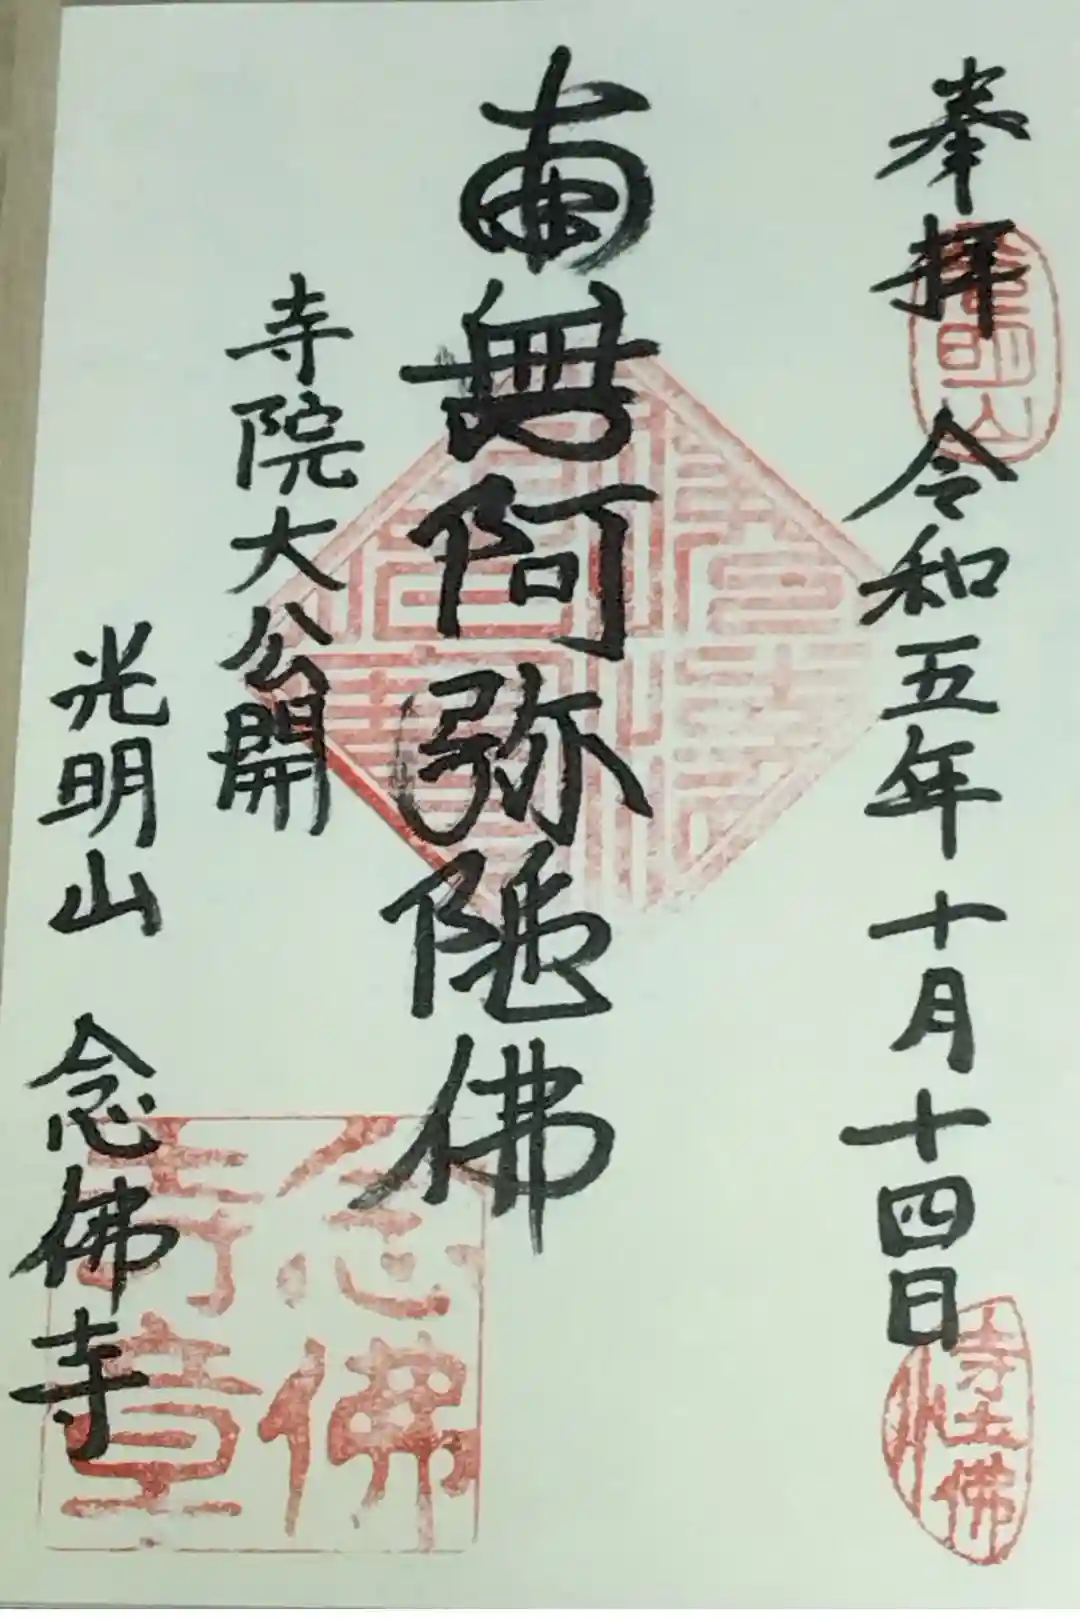 奉拝 令和五年十月十四日
南無阿弥陀佛
寺院大公開
光明山 念佛寺
光明山
念佛
寺章